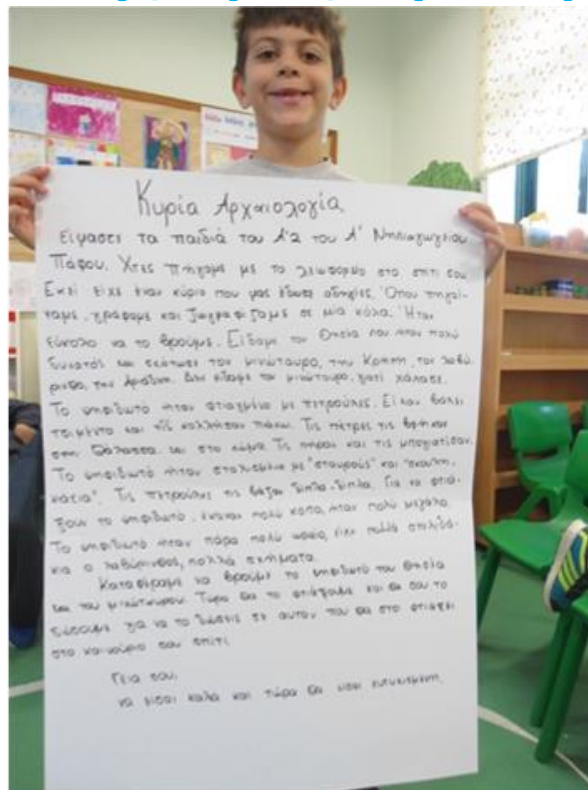 Κυρία Αρχαιολογία,
Είμαστε τα παιδιά του Α'2 του Α' Νηπιαγωγείου
Πάφου. Χτες πήγαμε με το λεωφορείο στο σπίτι σου
Εκεί είχε έναν κύριο που μας έδωσε οδηγίες. Όπου πηγαί-
ναμε, γράφαμε και ζωγραφίζαμε σε μία κόλα. Ήταν
εύκολο να το βρούμε. Είδαμε τον Θησέα που ήταν πολύ
δυνατός και σκότωσε τον μινώταυρο, την Κρήτη, τον λαβύ-
ρινθο, την Αριάδνη. Δεν είδαμε τον μινώταυρο, γιατί χάλασε.
Το ψηφιδωτό ήταν φτιαγμένο με πετρούλες. Είχαν βάλει
τσιμέντο και τις κολλήσαν πάνω. Τις πέτρες τις βρήκαν
στην θάλασσα και στο χώμα. Τις πήραν και τις μπογιάτισαν.
Το ψηφιδωτό ήταν στολισμένο με "σταυρούς" και "σκουλη-
κάκια". Τις πετρούλες τις βάζαν δίπλα-δίπλα. Για να φτιά-
ξουν το ψηφιδωτό, έκαναν πολύ κόπο, ήταν πολύ μεγάλο.
Το ψηφιδωτό ήταν πάρα πολύ ωραίο, είχε πολλά στολιδά-
κια ο λαβύρινθος, πολλά σχήματα.
Καταφέραμε να βρούμε το ψηφιδωτό του Θησέα
και του μινώταυρου. Τώρα θα το φτιάξουμε και θα σου το
δώσουμε για να το δώσεις σε αυτόν που θα στο φτιάξει
στο καινούριο σου σπίτι.
Γεια σου,
να είσαι καλά και τώρα θα είσαι ευτυχισμένη.